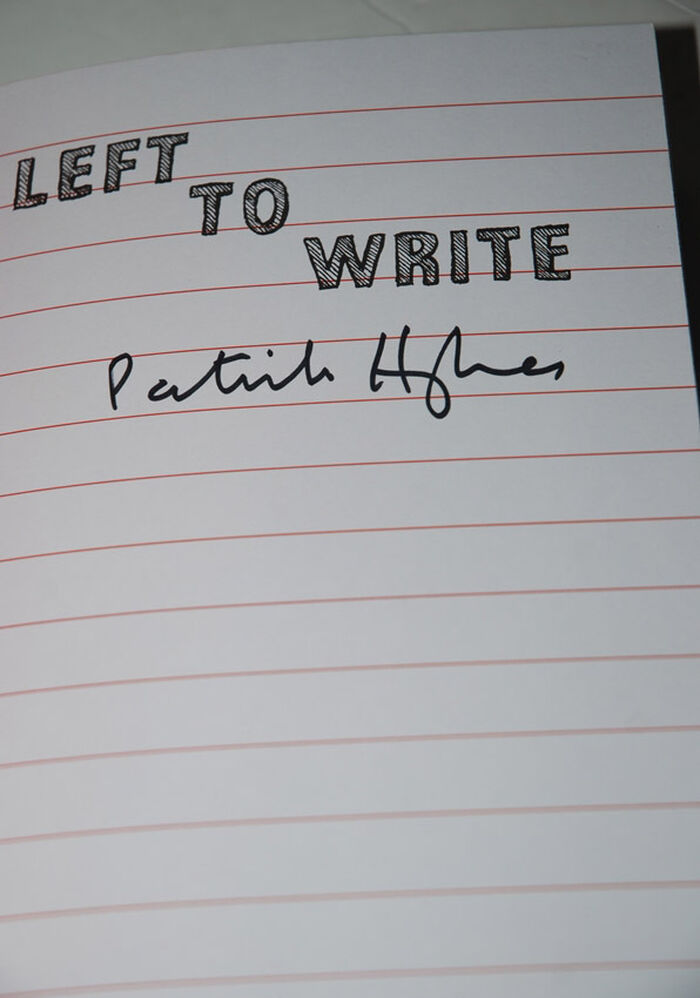 LEFT
TO
WRITE
Patrick Hughes